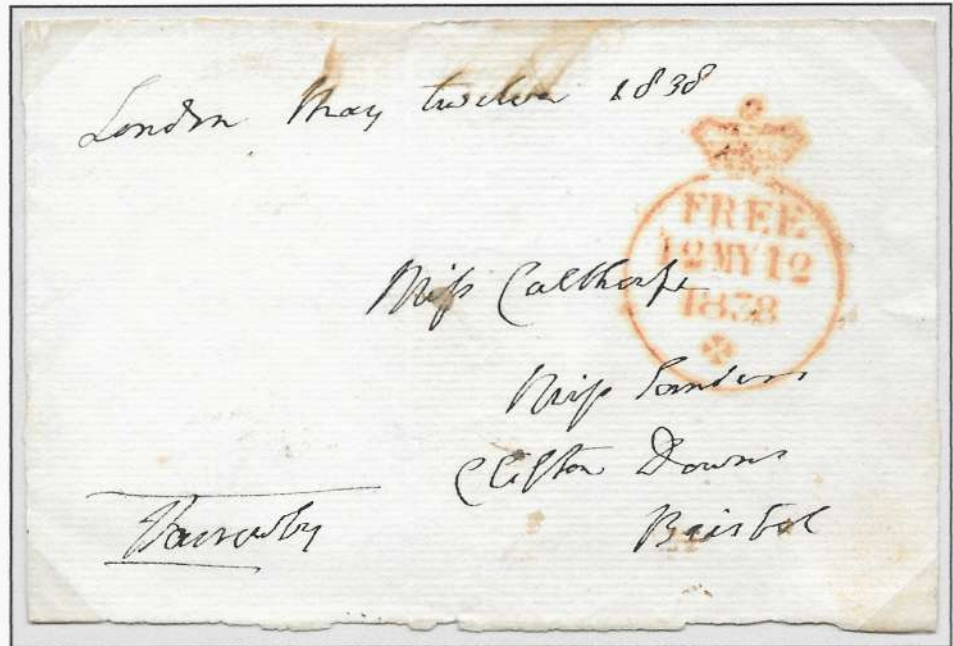 London May twelve 1838
FREE
12MY12
1838
Miss Calthorpe
Miss Sanders
Clifton Downs
Bristol